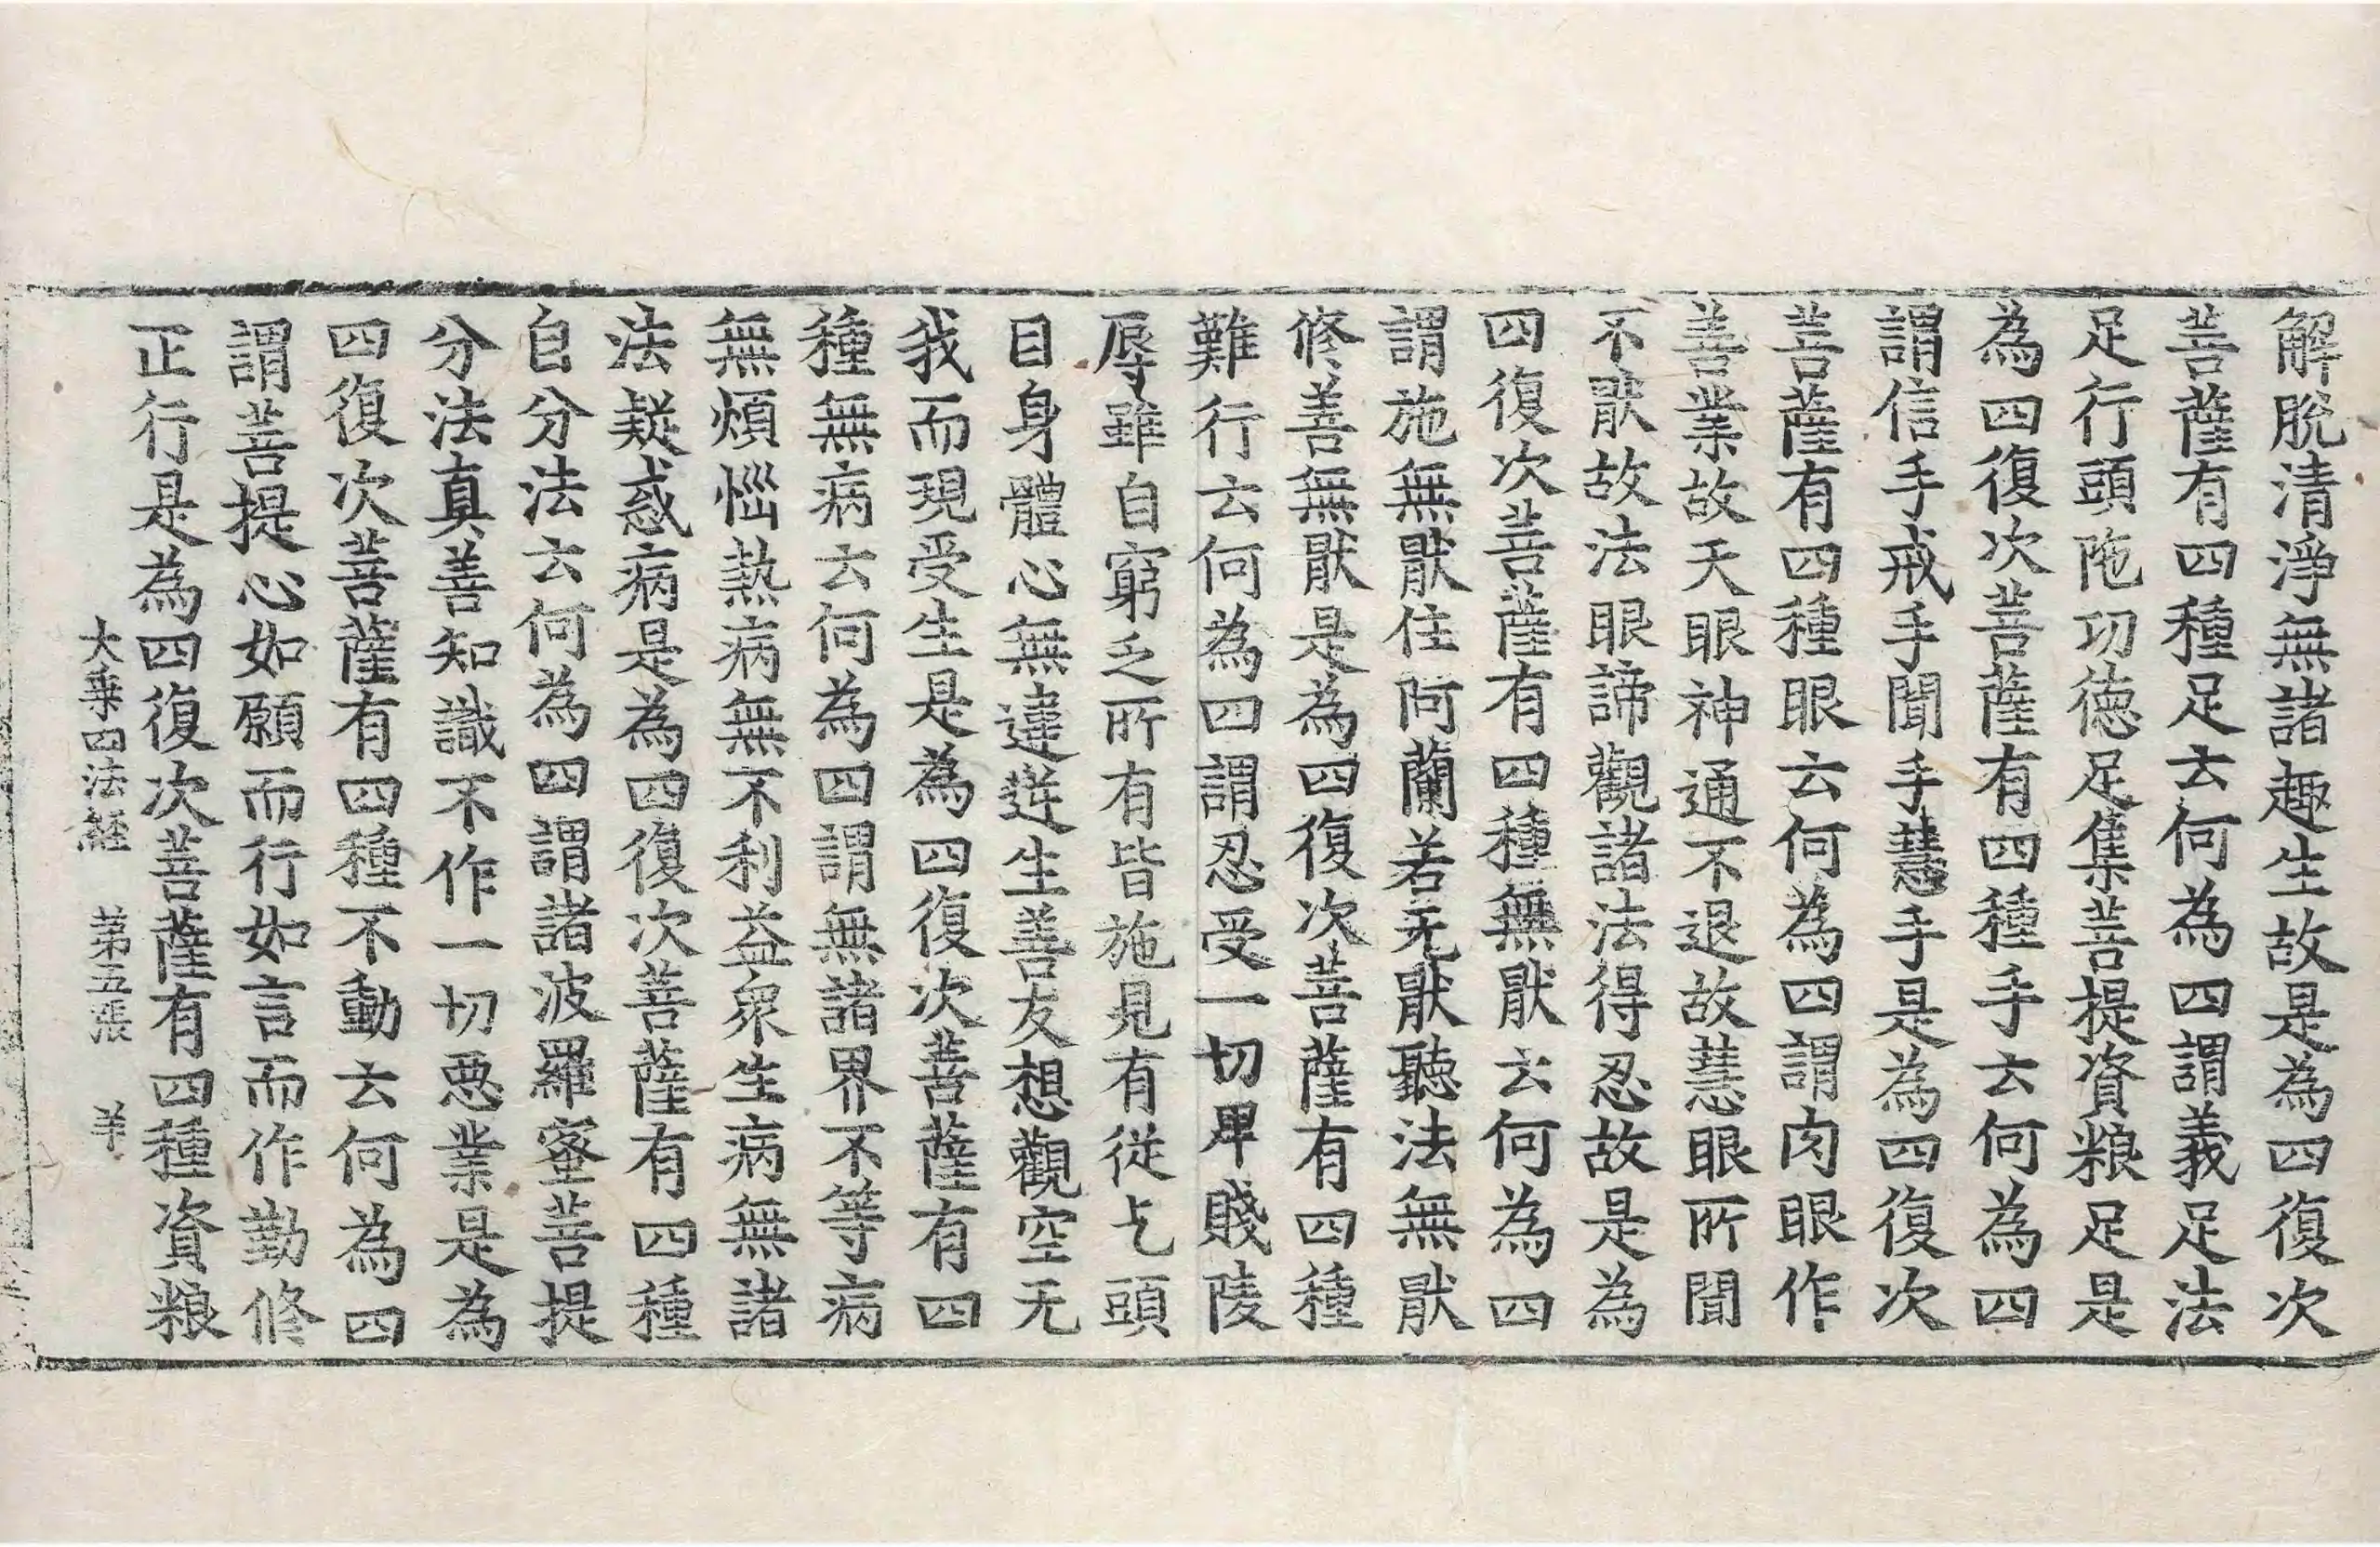 解脫清淨無諸趣生故是為四復次
菩薩有四種足云何為四謂義足法
足行頭陁功徳足集菩提資粮足是
為四復次菩薩有四種手云何為四
謂信手戒手聞手慧手是為四復次
菩薩有四種眼云何為四謂肉眼作
善業故天眼神通不退故慧眼所聞
不猒故法眼諦觀諸法得忍故是為
四復次菩薩有四種無猒云何為四
謂施無猒住阿蘭若无猒聽法無猒
修善無猒是為四復次菩薩有四種
難行云何為四謂忍受一切卑賤陵
辱雖自窮乏所有皆施見有從乞頭
目身體心無違逆生善友想觀空无
我而現受生是為四復次菩薩有四
種無病云何為四謂無諸界不等病
無煩惱熱病無不利益衆生病無諸
法疑惑病是為四復次菩薩有四種
自分法云何為四謂諸波羅蜜菩提
分法真善知識不作一切惡業是為
四復次菩薩有四種不動云何為四
謂菩提心如願而行如言而作勤修
正行是為四復次菩薩有四種資粮
大乗四法經 第五張 羊